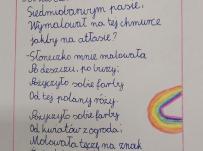 Siedmiobarwnym pasie,
Wymalował na tej chmurce
jakby na atłasie?
-Słoneczko mnie malowało
Po deszczu, po burzy;
Pożyczyło sobie farby
Od tej polnej róży.
Pożyczyło sobie farby
Od kwiatów z ogroda;
Malowało tęczę na znak